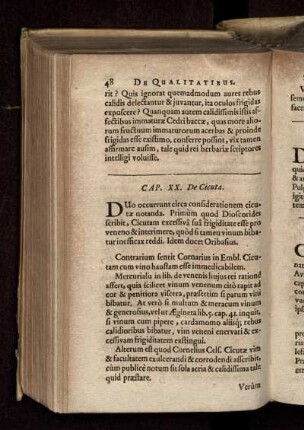 48 DE QUALITATIBUS.
rit? Quis ignorat quemadmodum aures rebus
calidis delectantur & juvantur, ita oculos frigidas
exposcere? Quanquam autem calidissimis istis af-
fectibus immaturæ Cedri baccæ, quas more alio-
rum fructuum immaturorum acerbas & proinde
frigidas esse existimo, conferre possint, vix tamen
affirmare ausim, tale quid rei herbariæ scriptores
intelligi voluisse.
CAP. XX. De Cicuta.
DUo occurrunt circa considerationem cicu-
tæ notanda. Primum quod Dioscorides
scribit, Cicutam excessivâ suâ frigiditate esse pro
veneno & interimere, quòd si tamen vinum biba-
tur inefficax reddi. Idem docet Oribasius.
Contrarium sentit Cornarius in Embl. Cicu-
tam cum vino haustam esse immedicabilem.
Mercurialis in lib. de venenis hujus rei rationē
affert, quia scilicet vinum venenum citò rapit ad
cor & penitiora viscera, præsertim si parum vini
bibatur. At verò si multum & meracum vinum
& generosus, velut Ægineta lib. 5. cap. 41. inquit,
si vinum cum pipere, cardamomo aliisq; rebus
calidioribus bibatur, vim veneni enervari & ex-
cessivam frigiditatem exstingui.
Alterum est quod Cornelius Cels. Cicutæ vim
& facultatem exulcerandi & corrodendi asscribit,
cùm publicè notum sit sola acria & calidissima tale
quid præstare.
Verùm